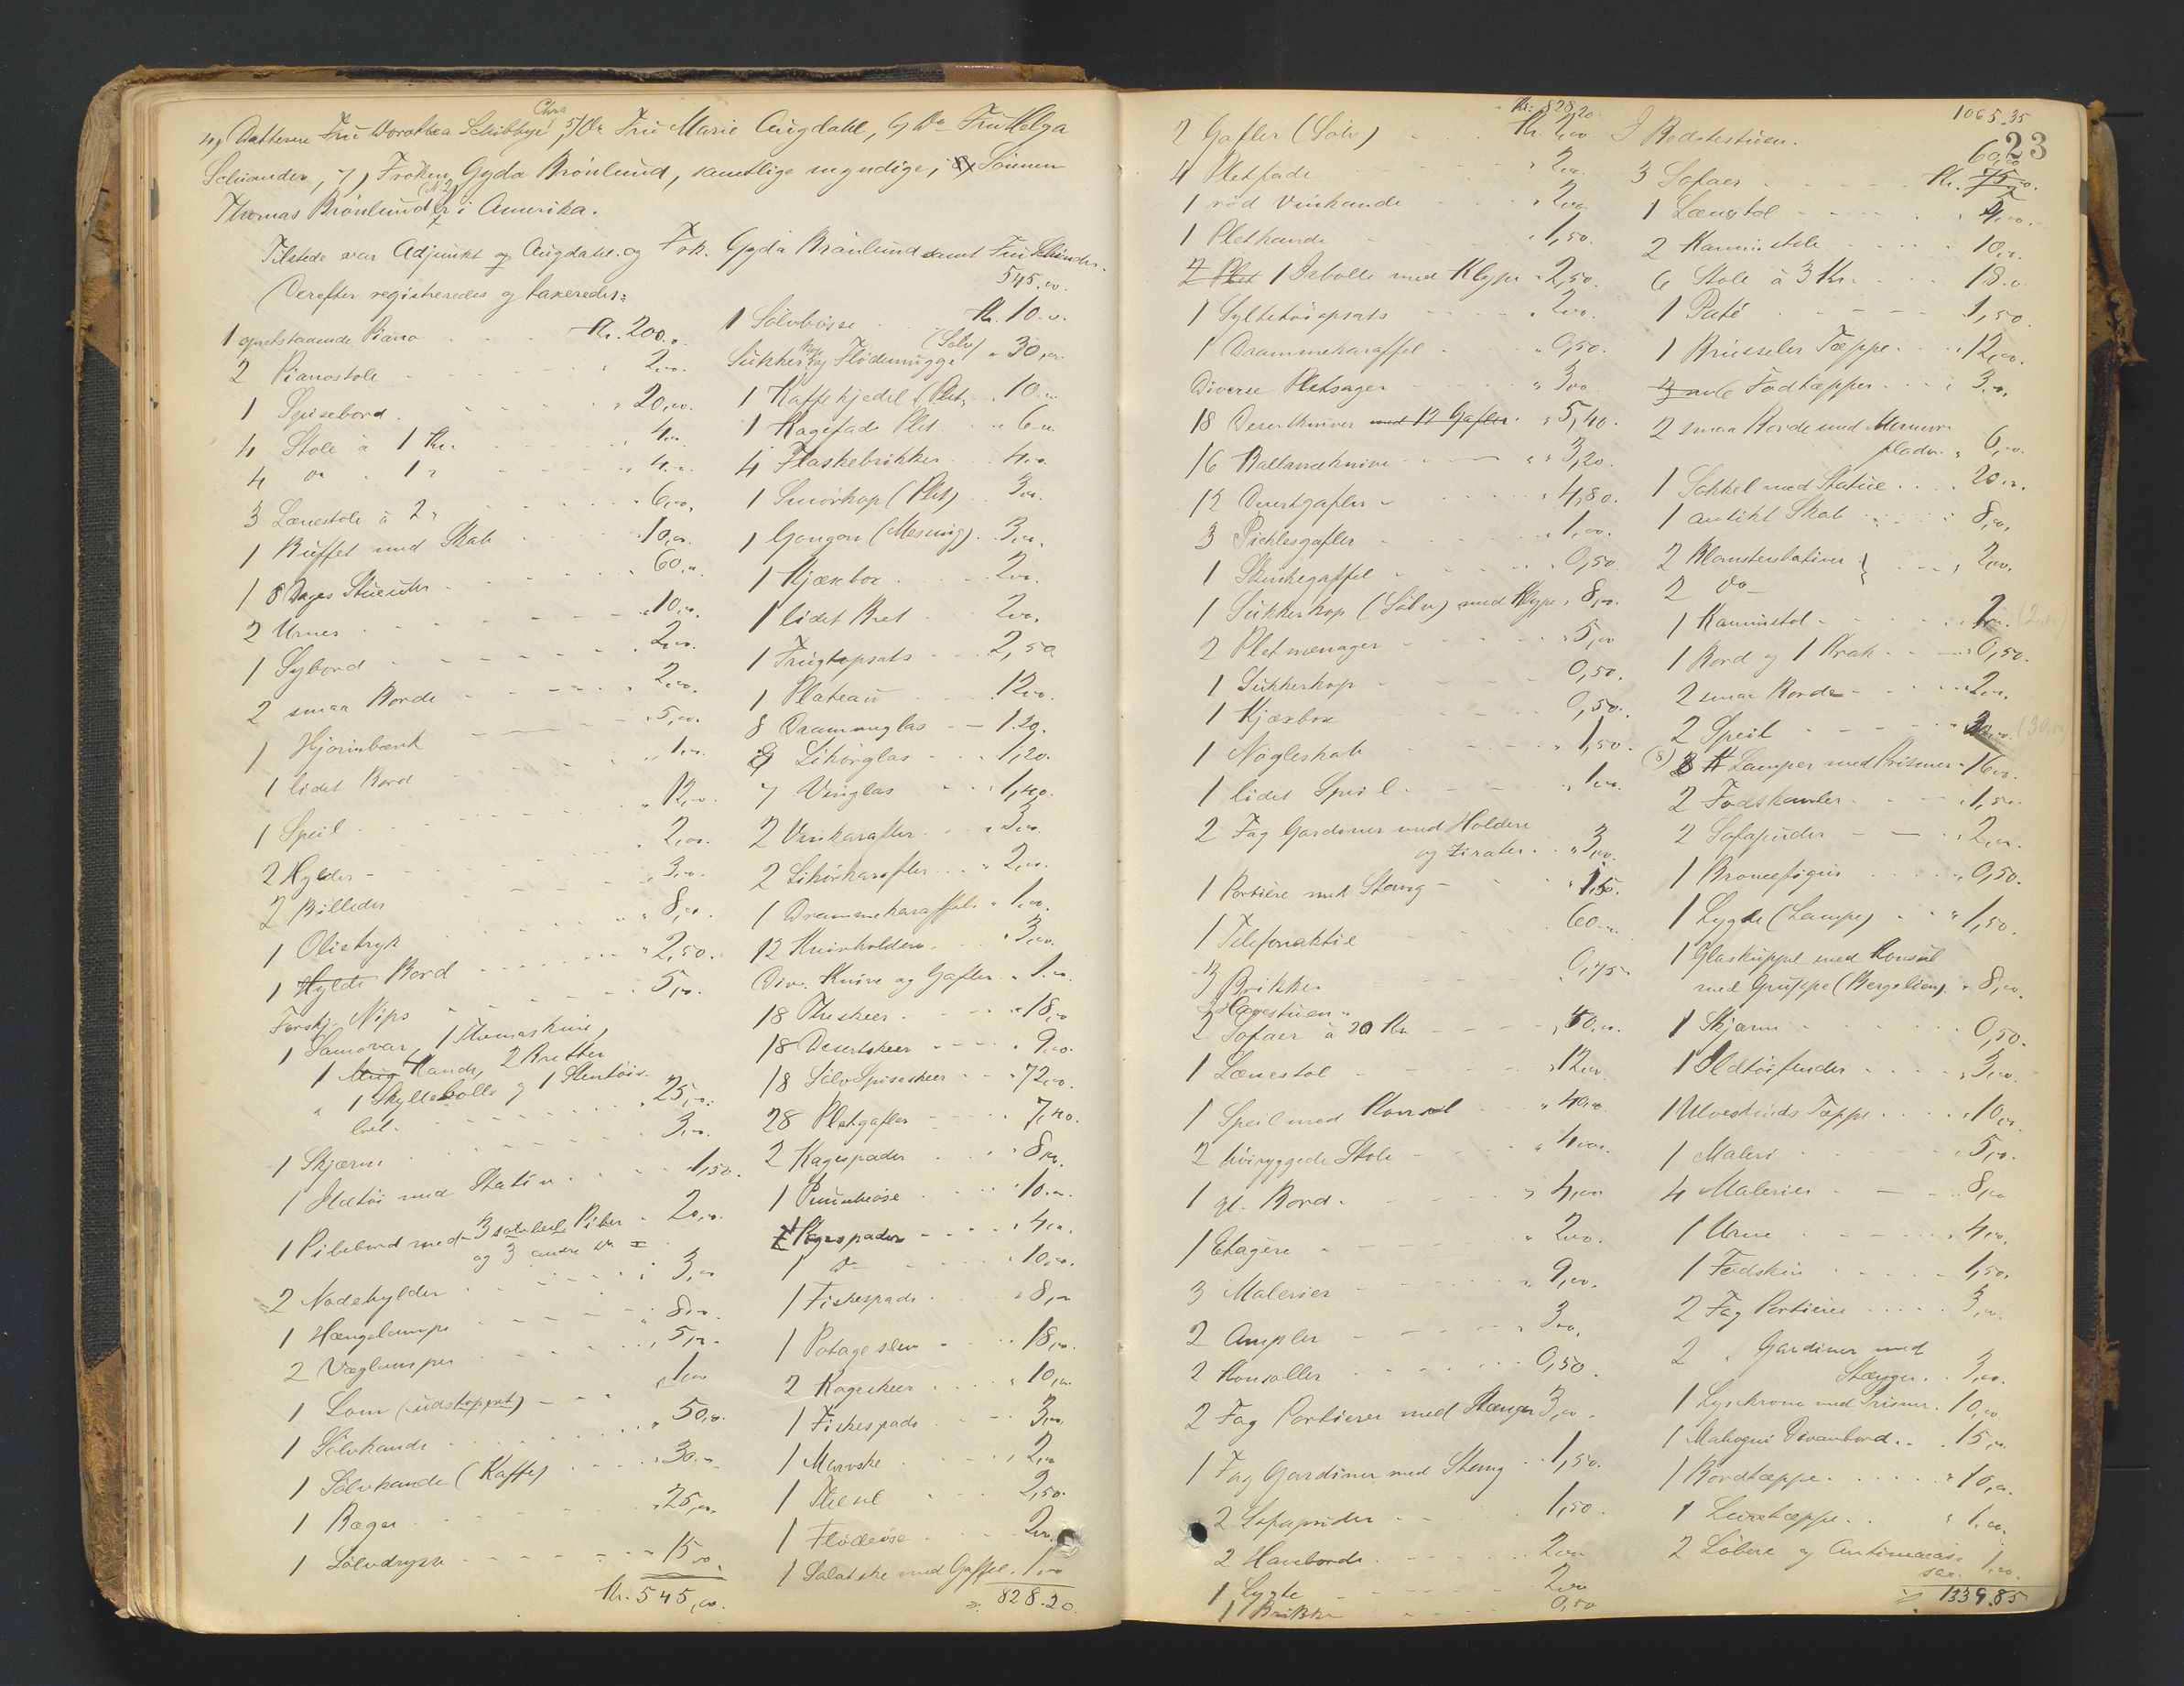 4, Datteren Fru Dorothea Schibbye, Chra 5, Do Fru Marie Augdahl, 6 Do Fru Helga
Schiander, 7, Frøken Gyda Brönlund, samtlige myndige, 8, Sönnen
Thomas Brönlund i Amerika.
Tilstede var Adjunkt Augdahl og Frk. Gyda Brönlund samt Fru Schiander.
Derefter registreredes og taxeredes:
1 opretstaaende Piano Kr. 200.
2 Pianostole 2,00.
1 Spisebord 20,00.
4 Stole à 1 Kr. 4,00
4 Do " 1 " 4.
3 Lænestole à 2 " 6,00
1 Buffet med Skab 10,00
1 8 Dages Stueuhr 60.
2 Urner 10,00
1 Sybord 2,00.
2 smaa Borde 2,00.
1 Hjörnebænk 5,00.
1 lidet Bord 1,00.
1 Speil 12,00.
2 Hylder 2,00.
2 Billeder 3,00.
1 Olietryk 8,00.
1 Hylde Bord 2,50.
Forskj. Nips 5,00.
1 Samovar, 1 Themaskine,
1 Kande, 2 Bretter
1 Skyllebolle og 1 Stentöis
25,00.
1 Skjærm 3,00.
1 Ildtöi med Stativ 1,50.
1 Pibebord med 3 sølvbesl. Piber 20,00.
og 3 andre Do
2 Nodehylder 3,00
1 Hængelampe 8,00
2 Væglamper 5,00
1 Lom (udstoppet) 1,00
1 Sölvkande 50,00.
1 Sölvkande (Kaffe) 30.
1 Bæger 25,00.
1 Sölvdrysse 15,00.
Kr. 545,00.
545,00.
1 Sölvbösse Kr. 10.
Sukker og Flödemugge (Sölv) 30,00.
1 Kaffekjedel (Plet) 10.
1 Kagefade Plet 6.
4 Flaskebrikker 4.
1 Smörkop (Plet) 3,00.
1 Gongon (Messing) 3,00.
1 Kjæxbox 2,00.
1 lidet Bret 2,00.
1 Frugtopsats 2,50
1 Plateau 12,00.
8 Drammeglas 1.20.
9 Likörglas 1,20.
7 Vinglas 1,40.
2 Vinkarafler 3,00.
2 Likörkarafler 2,00.
1 Drammekaraffel 1,00.
12 Knivholdere 3,00.
Div. Knive og Gafler 1.
18 Theskeer 18,00
18 Desertskeer 9,00.
18 Sölv Spiseskeer 72,00.
28 Pletgafler 7,40.
2 Kagespader 8,00.
1 Punscheöse 10.
Kagespader 4,00.
1 Do 10,00.
1 Fiskespade 8,00
1 Potageslev 18,00.
2 Kageskeer 10,00.
1 Fiskespade 3,00.
1 Marvske 2,00
1 Thesil 2,50.
1 Flödeöse 2,00.
1 Salatske med Gaffel 1,00
828.20.
Kr: 828,20
2 Gafler (Sölv) Kr. 2,00
4 Pletfade 2,00.
1 röd Vinkande 2,00
1 Pletkande 1,50.
2 Plet 1 Isbolle med Klype 2,50.
1 Syltetöiopsats 2,00.
1 Drammekaraffel 0,50.
Diverse Pletsager 3,00
18 Desertkniver med 12 Gafler 5,40.
16 Ballanceknive 3,20.
12 Desertgafler 4,80.
3 Picklesgafler 1,00.
1 Skinkegaffel 0,50
1 Sukkerkop (Sölv) med Klype 8,00.
2 Pletmenager 5,00
1 Sukkerkop 0,50.
1 Kjæxbox 0,50.
1 Nögleskab 1,50.
1 lidet Speil 1,00.
2 Fag Gardiner med Holdere
og Zirater 3,00.
1 Portiere med Stang 1,50.
1 Telefonaktie 60.
3 Brikker 0,75
Havestuen
2 Sofaer à 20 Kr 40,00.
1 Lænestol 12,00.
1 Speil med Konsol 40,00.
2 höiryggede Stole 4,00.
1 gl. Bord 4,00
1 Etagere 2,00.
3 Malerier 9,00.
2 Ampler 3,00.
2 Konsoller 0,50.
2 Fag Portierer med Stænger 3,00.
1 Fag Gardiner med Stang 1,50.
2 Sofapuder 1,50.
2 Haveborde 2,00
1 Lygte 2,00
1 Brikke 0,50
1065.35
23
I Bedstestuen.
60,00
3 Sofaer Kr. 75,00.
1 Lænstol 2,00.
2 Kaminstole 10,00.
6 Stole à 3 Kr. 18.
1 Paté 1,50.
1 Brüsseler Tæppe 12,00.
6 Fodtæpper 3.
2 smaa Borde med Marmor
plader 6,00.
1 Sokkel med Statue 20,00.
1 antikt Skab 8,00,
2 Blomsterstativer 2,00.
2 Do
1 Kaminstol 2 (2,00)
1 Bord og 1 Krak 0,50.
2 smaa Borde 2,00.
2 Speil 30,00. (30,00)
(8) Lamper med Prismer 16,00.
2 Fodskamler 1,50.
2 Sofapuder 2,00.
1 Broncefigur 0,50.
1 Lygte (Lampe) 1,50.
1 Glaskuppel med Konsol
med Gruppe (Bergslien) 8,00.
1 Skjærm 0,50.
1 Ildtöifender 3,00.
1 Ulveskinds Tæppe 10,00.
1 Maleri 5,00.
4 Malerier 8,00
1 Urne 4,00.
1 Fodskin 1,50.
2 Fag Portierer 3,00.
2 " Gardiner med
Stænger 3,00.
1 Lysekrone med Prismer 10,00.
1 Mahogni Divanbord 15,00
1 Bordtæppe 10,00.
1 Luretæppe 1,00.
2 Löbere og Antimacas-
sar. 1,00.
1339.85